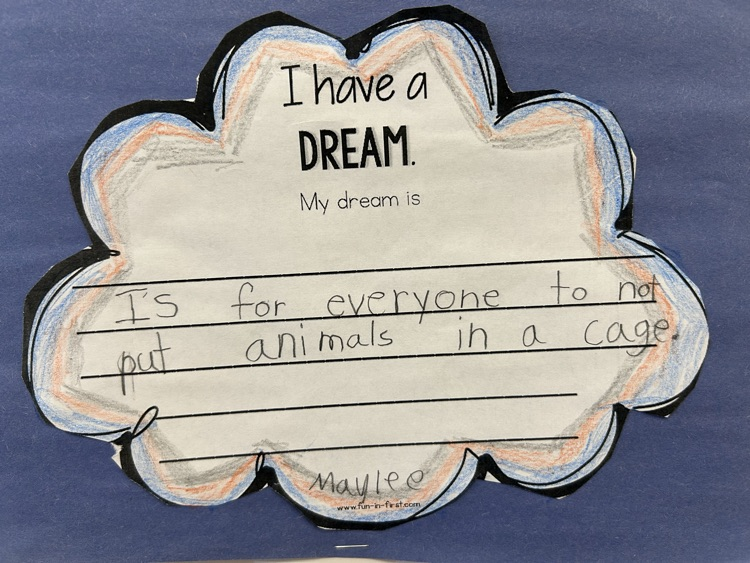 I have a
DREAM.
My dream is
I'S for everyone to not
put animals in a cage.
Maylee
www.fun-in-first.com